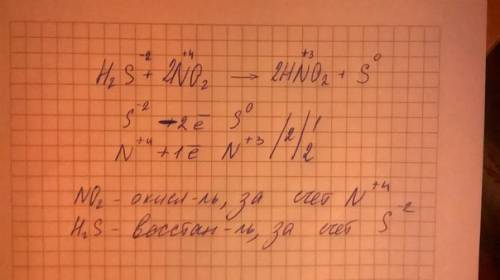 H₂S⁻² + 2N⁺⁴O₂ → 2HN⁺³O₂ + S⁰
S⁻² - 2ē S⁰ /2/1
N⁺⁴ + 1ē N⁺³ /2/2
NO₂ - окисл-ль, за счет N⁺⁴
H₂S - восстан-ль, за счет S⁻²